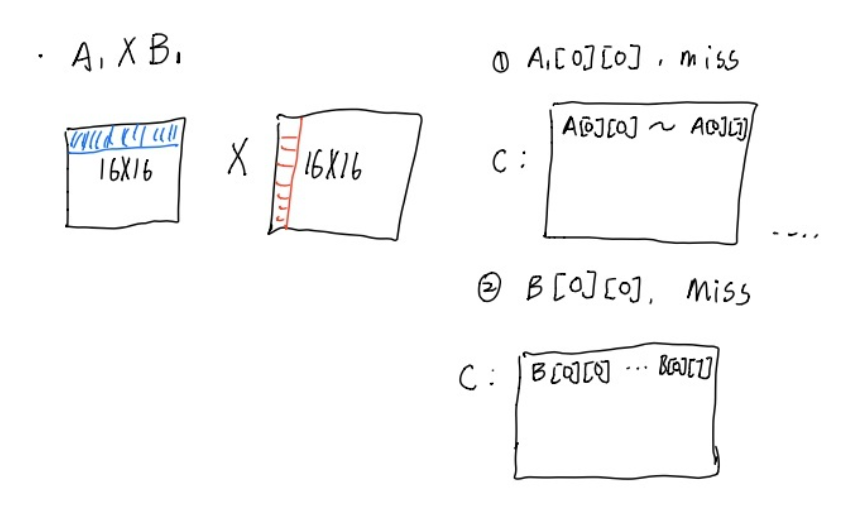 · A₁ X B₁
16X16 X 16X16
① A₁[0][0], miss
C: A[0][0] ~ A[0][7]
.....
② B[0][0], Miss
C: B[0][0] ... B[0][7]